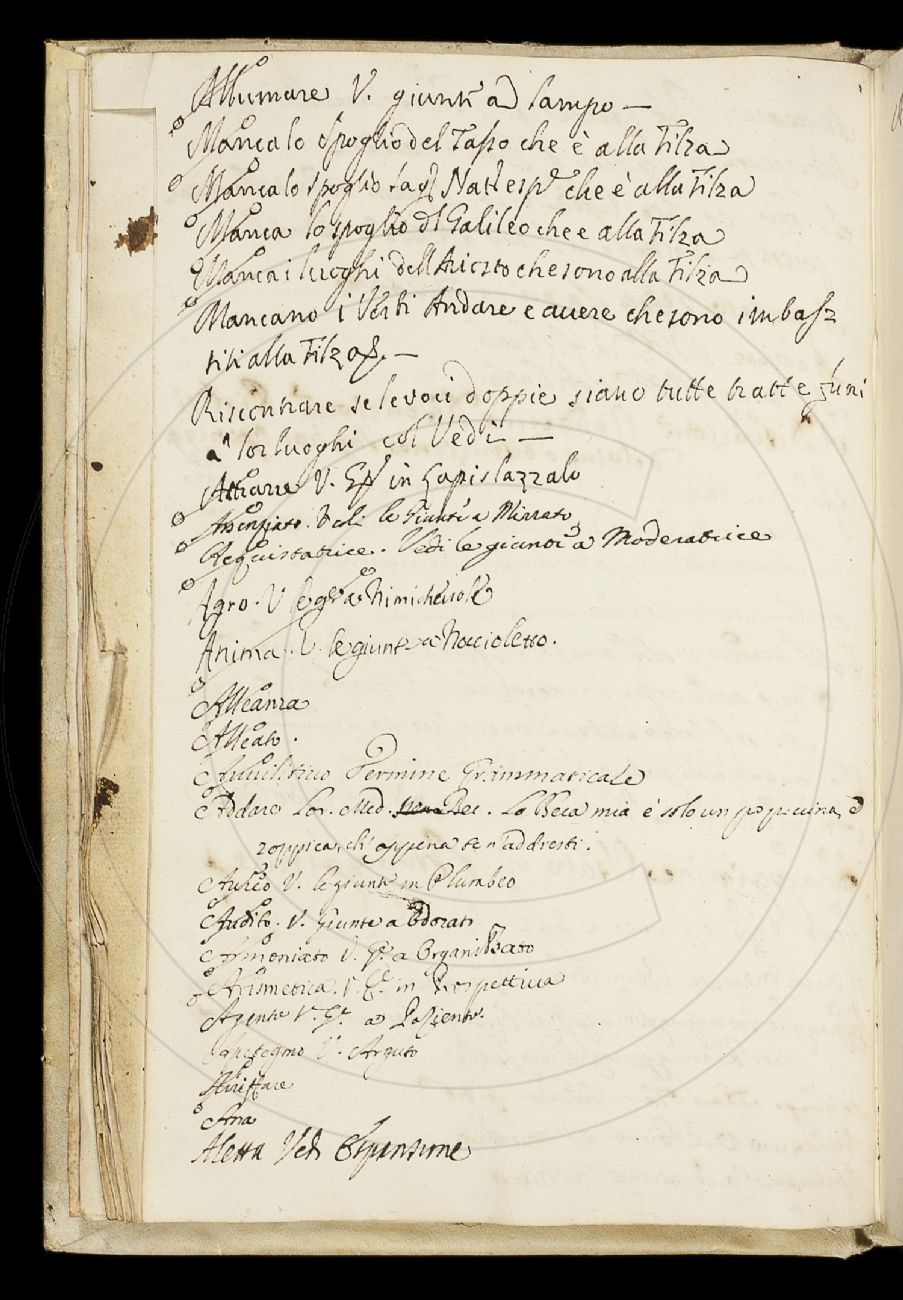 Allumare V. giunte ad lampo —
Manca lo spoglio del Tasso che è alla Filza
Manca lo spoglio sag. Nat. esp. che è alla Filza
Manca lo spoglio dl Galileo che e alla Filza
Manca i luoghi dell Ariosto che sono alla Filza
Mancano i Verbi Andare e avere che sono imbas
titi alla Filza
Riscontrare se le voci doppie siano tutte tratte fuori
a lor luoghi col Vedi —
Attrarre V. in Lapislazzalo
Assenziato. Vedi le Giunte a Mirrato
Acquistatrice. Vedi le giunte a Moderatrice
Agro. V le a Nimichevole
Anima. V. le giunte a Noccioletto.
Alleanza
Alleato.
Termine Grammaticale
Addare Lor. Med. Bec. La Beca mia è solo un po piccina, e
zoppica, ch' appena te n' addresti.
Aureo V. le giunte in Plumbeo
Audito. V. Giunte a Odorato
Armoniato V. G. a Organizzato
Arismetica. V. G. in Prospettiva
Agente V. G. a Paziente.
V. Arguto
Ana
Aletta Vedi Espansione